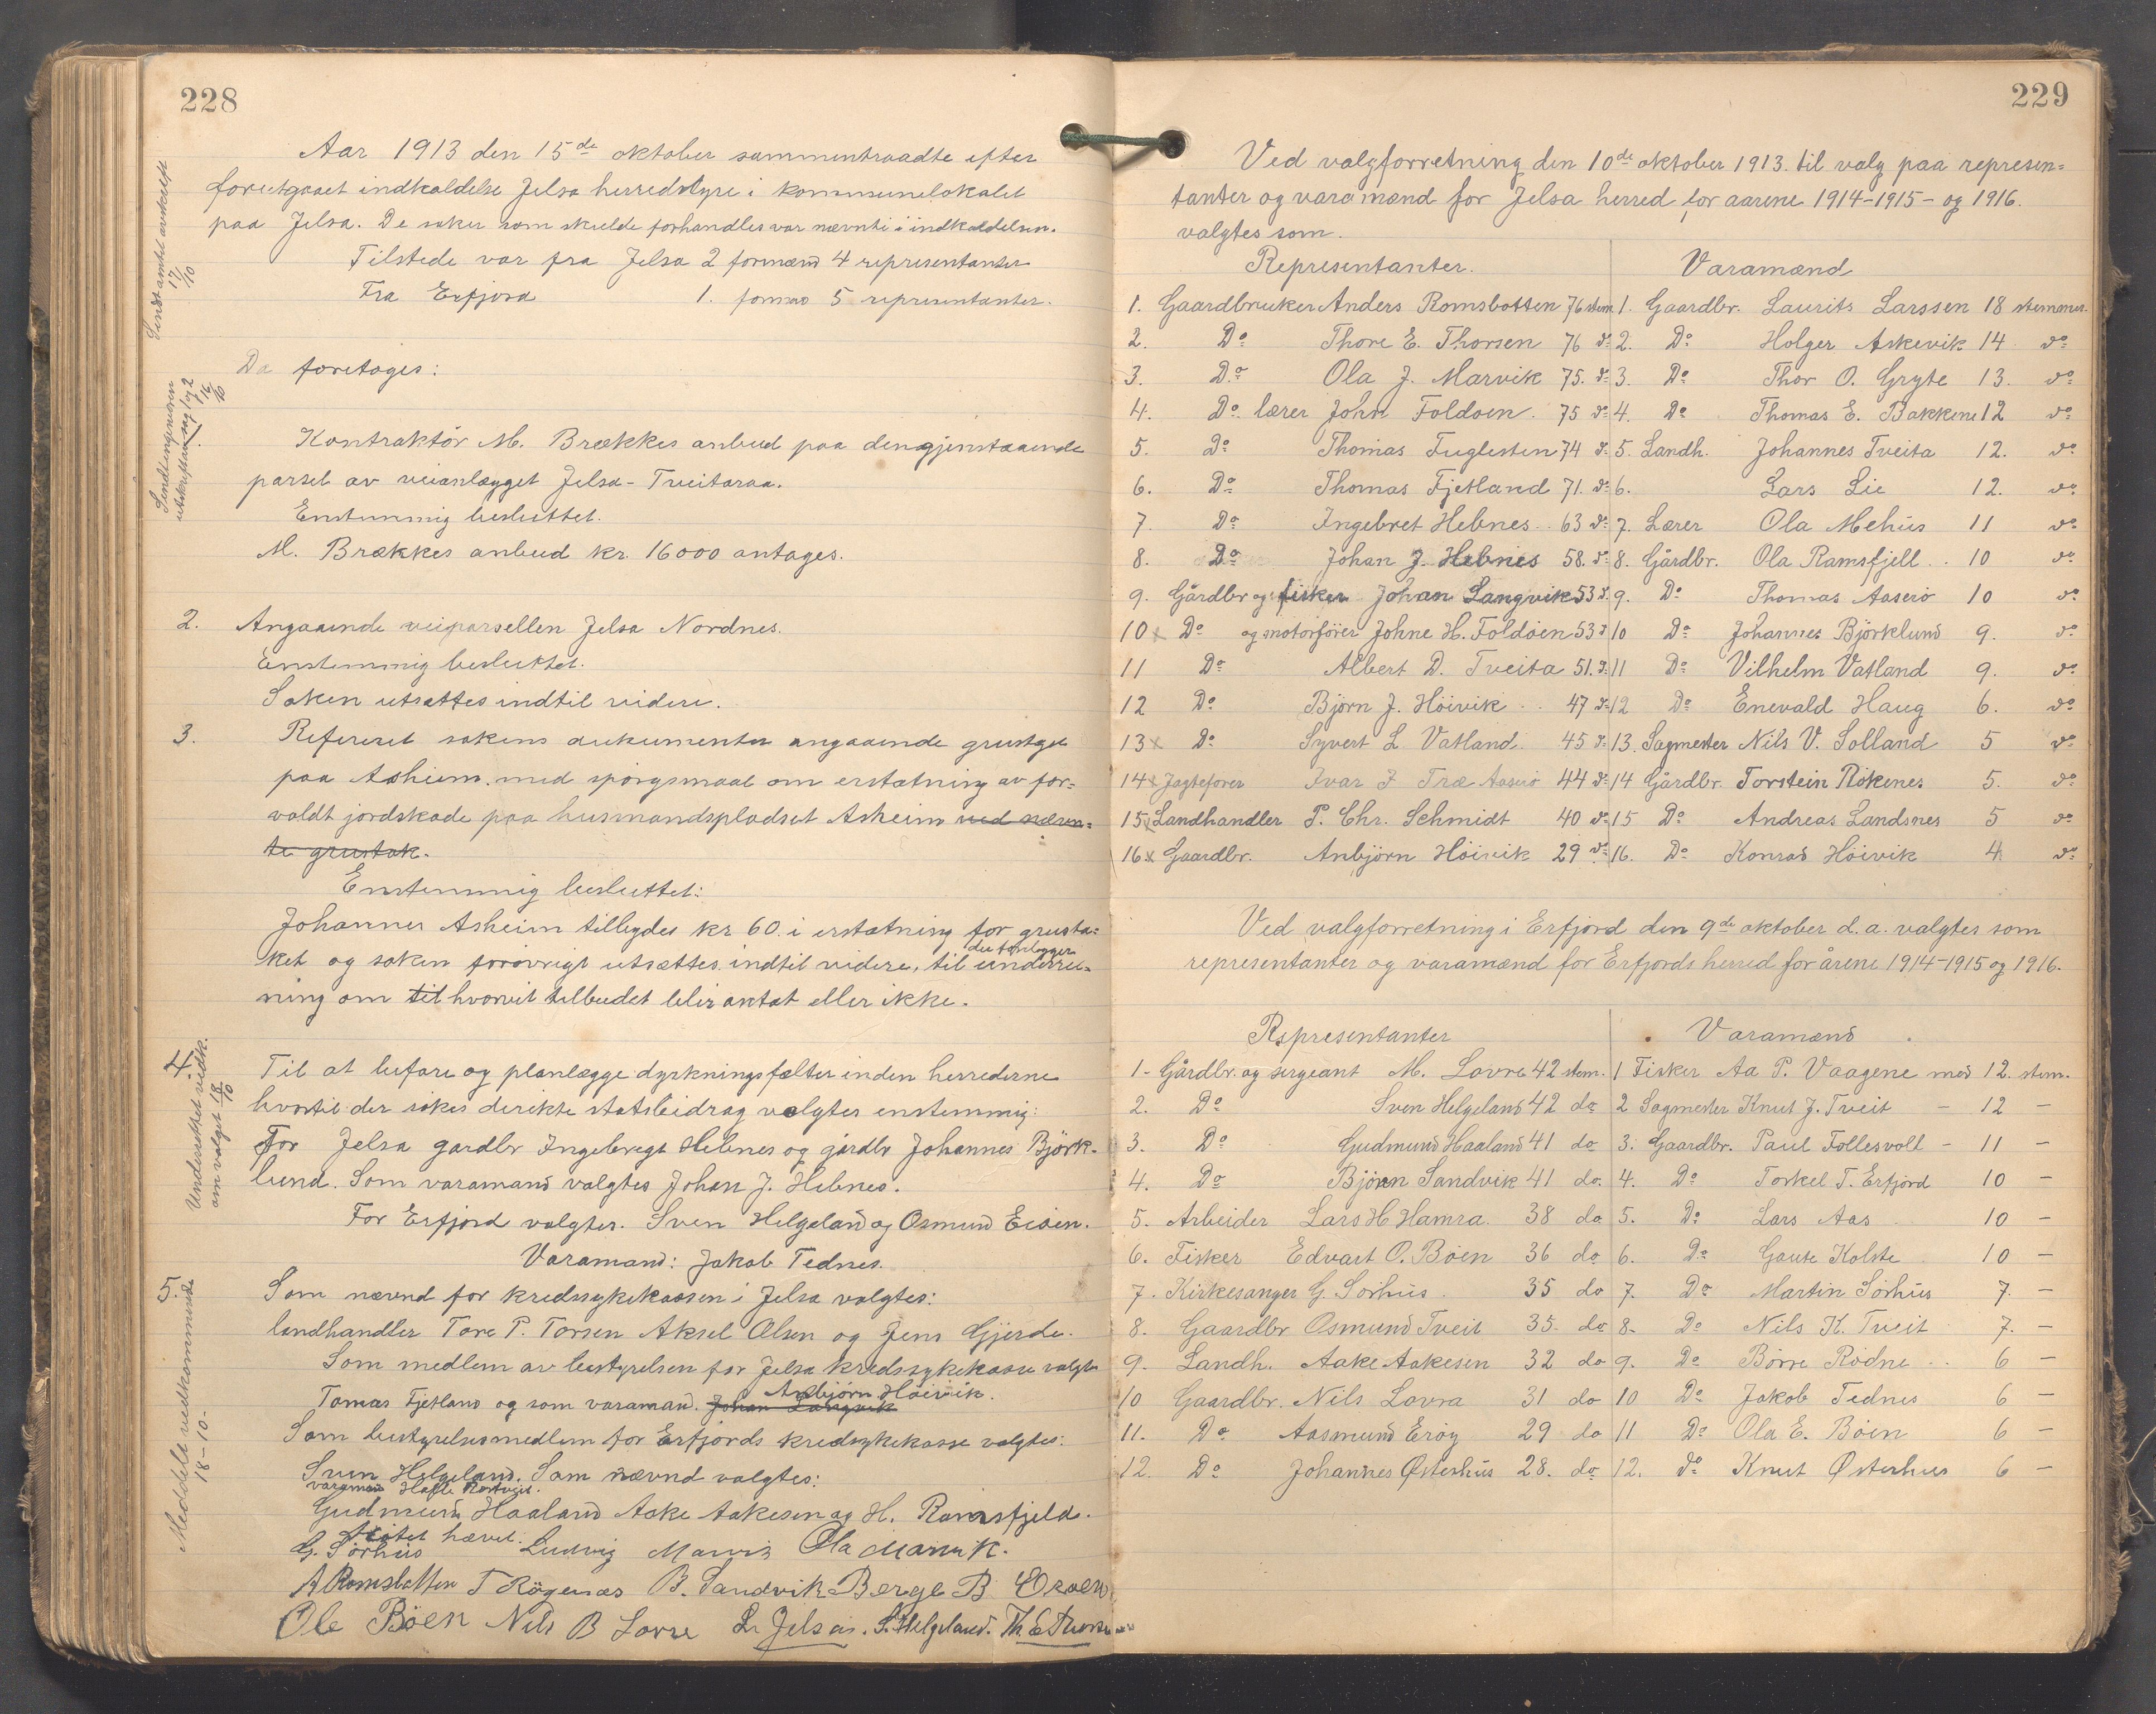 228
Aar 1913 den 15de oktober sammentraadte efter
forutgaaet indkaldelse Jelsa herredstyre i kommunelokalet
paa Jelsa. De saker som skulde forhandles var nævnt i indkaldelsen.
Tilstede var fra Jelsa 2 formænd 4 representanter
Fra Erfjord 1. formand 5 representanter.
Sendt amtet avskrift 17/10
Da foretoges:
Sendt ingeniøren utskrift av sag 1 og 2 16/10
1. Kontraktör M. Brækkes anbud paa den gjenstaaende
parsel av veianlægget Jelsa-Tveitaraa.
Enstemmig besluttet.
M. Brækkes anbud kr. 16000 antages.
2. Angaaende veiparsellen Jelsa Nordnes.
Enstemmig besluttet.
Saken utsættes indtil videre.
3. Refereret sakens dukumenter angaaende grustak
paa Asheim, med spörgsmaal om erstatning av for=
voldt jordskade paa husmandspladset Asheim ved nævn=
te grustak.
Enstemmig besluttet:
Johannes Asheim tilbydes kr 60. i erstatning for grusta=
der foreligger
ket og saken forövrigt utsættes indtil videre, til underret=
ning om til hvorvit tilbudet blir antat eller ikke.
4. Til at befare og planlægge dyrkningsfelter inden herrederne
hvortil der sökes direkte statsbidrag valgtes enstemmig:
For Jelsa gardbr Ingebregt Hebnes og gårdbr Johannes Björk-
lund. Som varamand valgtes Johan J. Hebnes.
For Erfjord valgtes. Sven Helgeland og Osmund Eröen.
Varamand: Jakob Tednes.
Underrettet vedk. om valget 18/10
5. Som nævnd for kredssykekassen i Jelsa valgtes:
landhandler Tore P. Torsen Aksel Olsen og Jens Gjerde.
Som medlem av bestyrelsen for Jelsa kredssykekasse valgtes
Anbjörn Höivik.
Tomas Fjetland og som varamand. Johan Langvik
Som bestyrelsesmedlem for Erfjords kredssykekasse valgtes:
Sven Helgeland. Som nævnd valgtes:
varamand
Gudmund Haaland Aake Aakesen og H. Ramsfjeld.
Meddelt vedkommende 18-10-
Mötet hævet.
G. Sörhus Ludvig Marvik Ola Marvik.
A Romsbotten T Rögenæs B. Sandvik Berge B Eroen
Ole Böen Nils B Lovre L. Jelsa. S. Helgeland. Th. E Thorsen
229
Ved valgforretning den 10de oktober 1913. til valg paa represen=
tanter og varamænd for Jelsa herred for aarene 1914-1915- og 1916.
valgtes som.
Representanter. Varamænd
1. Gaardbruker Anders Romsbotten 76 stem 1. Gaardbr. Laurits Larssen 18 stemmer.
2. Do Thore E. Thorsen 76 do 2. Do Holger Askevik 14 do
3. Do Ola J. Marvik 75. do 3. Do Thor O. Gryte 13. do
4. Do lærer John Foldoen. 75 do 4. Do Thomas E. Bakkene 12 do
5. Do Thomas Fuglesten 74 do 5. Landh. Johannes Tveita 12. do
6. Do Thomas Fjetland 71. do 6. Lars Lie 12. do
7. Do Ingebret Hebnes 63 do 7. Lærer Ola Mehus 11 do
8. Do Johan J. Hebnes 58. do 8. Gårdbr. Ola Ramsfjell 10 do
9. Gårdbr og fisker Johan Langvik 53 do 9. Do Thomas Aaserö 10 do
10 x Do og motorförer Johne H. Foldöen 53 do 10 Do Johannes Björklund 9. do
11 Do Albert D. Tveita 51. do 11 Do Vilhelm Vatland 9. do
12 Do Björn J. Höivik 47 do 12 Do Enevald Haug 6. do
13 x Do Syvert L Vatland 45 do 13. Sagmester Nils V. Solland 5 do
14 x Jagtefører Ivar J Træ Aaserö 44 do 14 Gårdbr. Torstein Rökenes 5. do
15 x Landhandler P. Chr. Schmidt 40 do 15 Do Andreas Landsnes 5 do
16 x Gaardbr. Anbjörn Höivik 29 do 16. Do Konrad Höivik 4 do
Ved valgforretning i Erfjord den 9de oktober d.a. valgtes som
representanter og varamænd for Erfjords herred for årene 1914-1915 og 1916.
Representanter Varamænd
1- Gårdbr. og sergeant M. Lovre 42 stem. 1 Fisker Aa P. Vaagene med 12. stem.
2. Do Sven Helgeland 42 do 2 Sagmester Knut J. Tveit - 12 -
3. Do Gudmund Haaland 41 do 3. Gaardbr. Paul Follesvoll - 11 -
4. Do Björn Sandvik 41 do. 4. Do Torkel T. Erfjord 10 -
5. Arbeider Lars H. Hamra. 38 do 5. Do Lars Aas 10 -
6. Fisker Edvart O. Böen 36 do 6. Do Gaute Kolste 10 -
7. Kirkesanger G. Sörhus. 35 do 7. Do Martin Sörhus 7. -
8. Gaardbr Osmund Tveit 35. do 8. Do Nils K. Tveit 7. -
9. Landh. Aake Aakesen 32 do 9. Do Börre Rödne 6 -
10 Gaardbr. Nils Lovra 31 do 10 Do Jakob Tednes 6 -
11. Do Aasmund Eröy 29 do 11 Do Ola E. Böen 6 -
12. Do Johannes Østerhus 28. do 12. do Knut Østerhus 6 -